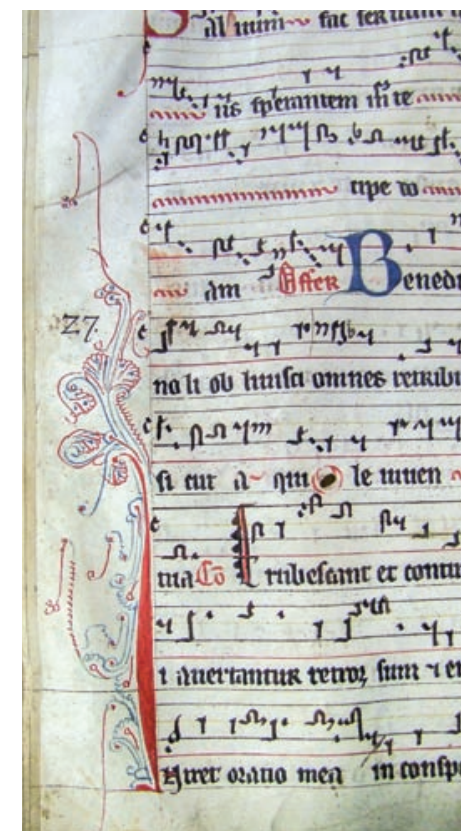 Saluum fac seruum
cipe do
am Offer Benedi
27.
no li obliuisci omnes retribu
si cut a qui le iuuen
tua Co Erubescant et contu
t auertantur retroꝝ sum ⁊ er
Intret oratio mea in conspe